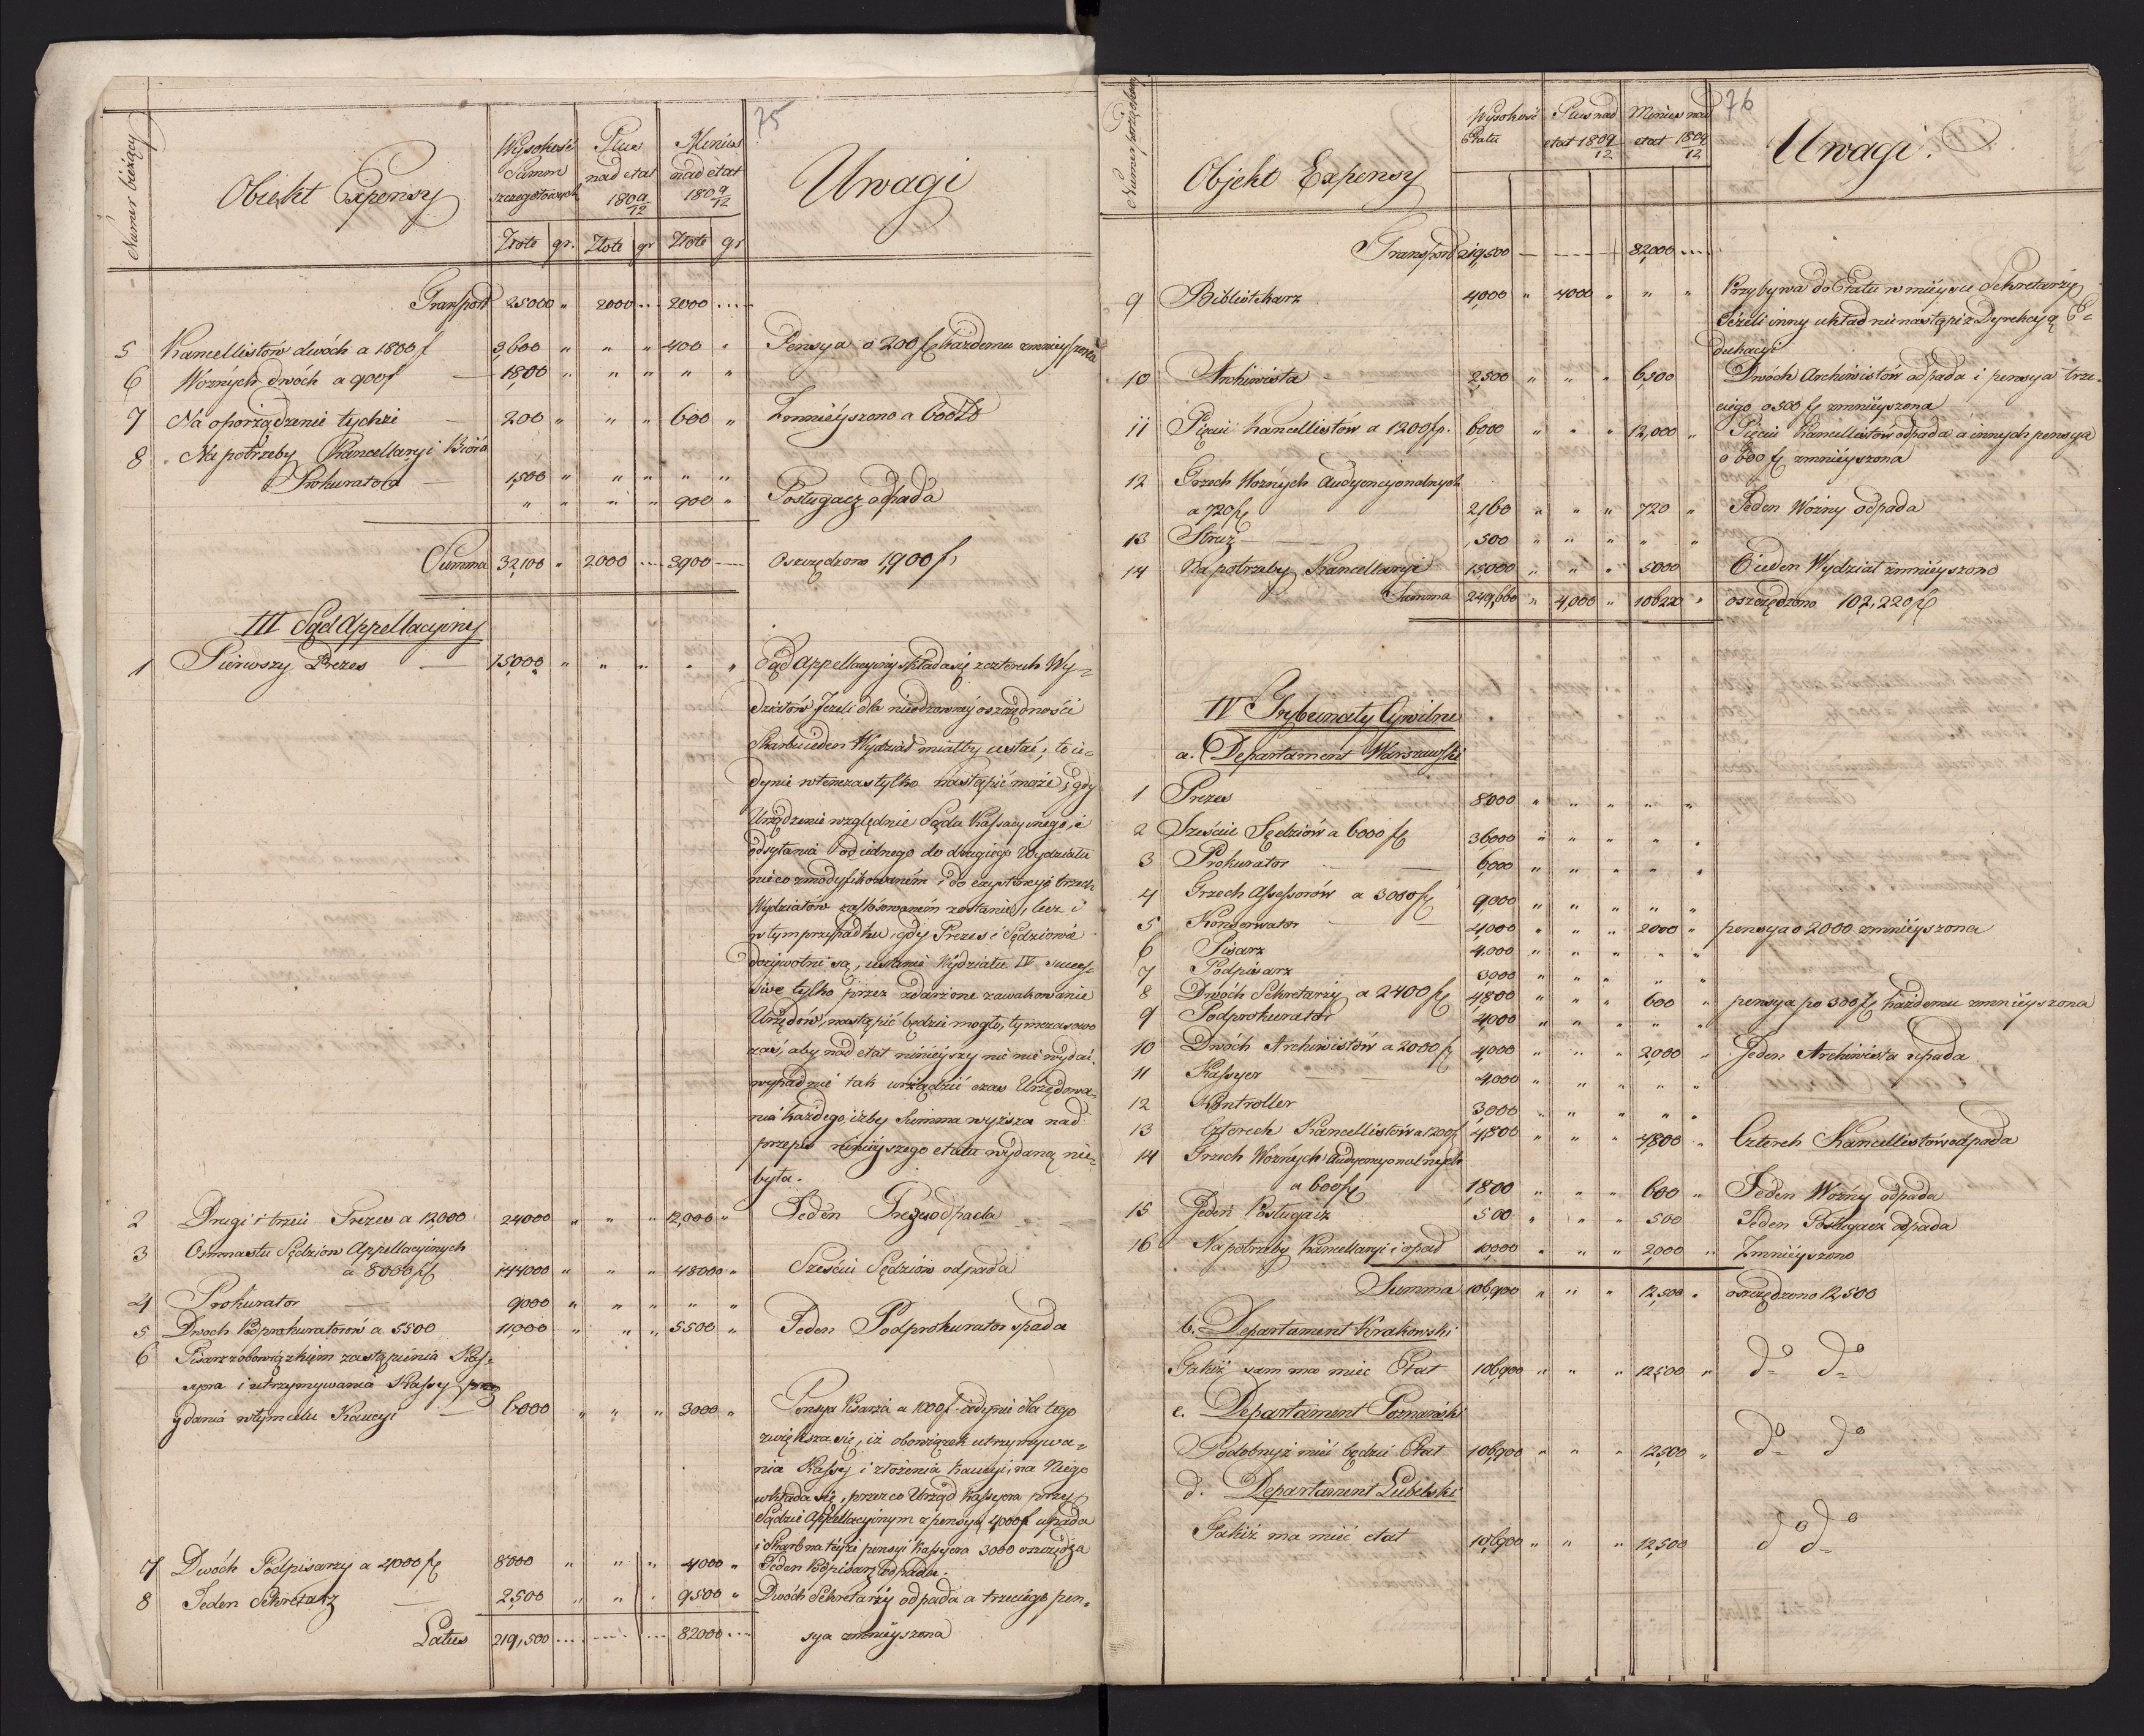 75
Numer bieżący
Obiekt Expensy
Wysokość Summ szczegółowych
Plus nad etat 1809/12
Minus nad etat 1809/12
Uwagi
Złote gr. Złote gr Złote gr
Transport 25000 " 2000 ... 2000 ....
5 Kancellistów dwóch a 1800 f 3,600 " " " 400 " Pensya o 200 f każdemu zmnieyszona
6 Woźnych dwóch a 900 f — 1800 " " " " "
7 Na oporządzenie tychże — 200 " " " 600 " Zmnieyszono a 600 Zł
8 Na potrzeby Kancellaryi Biora
Prokuratora — 1,500 " " " " "
" " " " 900 " Posługacz odpada
Summa 32,100 " 2000 ... 3900 — Oszczędzono 1,900 f
III Sąd Appellacyiny
1 Pierwszy Prezes — 15000 " " " " " Sąd Appellacyiny składa się z czterech Wy=
działów Jeżeli dla nieodzowney oszczędności
Skarbu ieden Wydział miałby ustać, to ie=
dynie wtenczas tylko nastąpić może, gdy
Urządzenie względnie Sądu Kassacyinego, i
odsyłania od iednego do drugiego Wydziału
nieco zmodyfikowaném i do exystencyi trzech
Wydziałów zastosowaném zostanie, lecz i
w tym przypadku, gdy Prezes i Sędziowie
dożywotni są, ustanie Wydziału IV succes=
sive tylko przez zdarzone zawakowanie
Urzędów, nastąpić będzie mogło, tymczasowo
zaś, aby nad etat ninieyszy nic nie wydać,
wypadnie tak urządzić czas Urzędowa=
nia każdego, iżby Summa wyższa nad
przepis ninieyszego etatu wydaną nie=
była.
2 Drugi i trzeci Prezes a 12000 24000 " " " 12,000 " Jeden Prezes odpada
3 Ośmnastu Sędziow Appellacyinych
a 8000 f 144000 " " " 48000 " Sześciu Sędziow odpada
4 Prokurator — 9000 " " " " "
5 Dwoch Podprokuratorów a 5500 11,000 " " " 5500 " Jeden Podprokurator upada
6 Pisarz z obowiązkiem zastąpienia Kas=
syera i utrzymywania Kassy
ydania w tym celu Kaucyi — 6000 " " " 3000 " Pensya Pisarza a 1000 f iedynie dla tego
zwiększa się, iż obowiązek utrzymywa=
nia Kassy i złożenia kaucyi, na Niego
wkłada się, przez co Urząd Kassyera przy
Sądzie Appellacyinym z pensyą 4000 f upada
i Skarb na téyże pensyi Kassyera 3000 oszczędza
7 Dwóch Podpisarzy a 4000 f 8000 " " " 4000 " Jeden Podpisarz odpada.
8 Jeden Sekretarz — 2500 " " " 9500 " Dwóch Sekretarzy odpada a trzeciego pen=
Latus 219,500 .... 82000 ... sya zmnieyszona
76
Numer porządkowy
Objekt Expensy
Wysokość Etatu
Plus nad etat 1809/12
Minus nad etat 1809/12
Uwagi.
Transport 219,500 — — 82,000 ....
9 Bibliotekarz 4,000 " 4000 " " " Przybywa do Etatu w mieysce Sekretarzy
Jeżeli inny układ nie nastąpi z Dyrekcyą E=
dukacyi
10 Archiwista 2,500 " " " 6500 Dwóch Archiwistów odpada i pensya trze=
ciego o 500 f zmnieyszona
11 Pięciu Kancellistów a 1200 f. 6,000 " " " 12,000 " Pięciu Kancellistów odpada a innych pensya
o 600 f zmnieyszona
12 Trzech Woźnych Audyencyonalnych
a 720 f 2,160 " " " 720 " Jeden Woźny odpada
13 Struż 500 " " " " "
14 Na potrzeby Kancellaryi 15,000 " " " 5000 O ieden Wydział zmnieyszono
Summa 249,660 " 4,000 " 106220 " oszczędzono 102,220 f
IV Trybunały Cywilne
a. Departament Warszawski
1 Prezes 8000 " " " " "
2 Sześciu Sędziów a 6000 f 36,000 " " " " "
3 Prokurator 6,000 " " " " "
4 Trzech Assessorów a 3000 f 9,000 " " " " "
5 Konserwator — 4,000 " " " 2000 " pensya o 2000 zmnieyszona
6 Pisarz 4,000 " " " " "
7 Podpisarz 3,000 " " " " "
8 Dwóch Sekretarzy a 2400 f 4,800 " " " 600 " pensya po 300 f każdemu zmnieyszona
9 Podprokurator 4,000 " " " " "
10 Dwóch Archiwistów a 2000 f 4,000 " " " 2,000 " Jeden Archiwista upada
11 Kassyer — 4,000 " " " " "
12 Kontroller 3000 " " " " "
13 Czterech Kancellistów a 1200 f 4800 " " " 4800 " Czterech Kancellistów odpada
14 Trzech Woźnych Audyencyonalnych
a 600 f 1,800 " " " 600 " Jeden Woźny odpada
15 Jeden Posługacz 500 " " " 500 Jeden Posługacz odpada
16 Na potrzeby Kancellaryi i opał 10,000 " " " 2,000 " Zmnieyszono
Summa 106,900 " " " 12,500 " oszczędzono 12,500
b. Departament Krakowski
Takiż sam ma mieć Etat 106,900 " " " 12,500 " do do
c. Departament Poznański
Podobnyż mieć będzie Etat 106,900 " " " 12,500 " do do
d. Departament Lubelski
Takiż ma mieć etat 106,900 " " " 12,500 do do